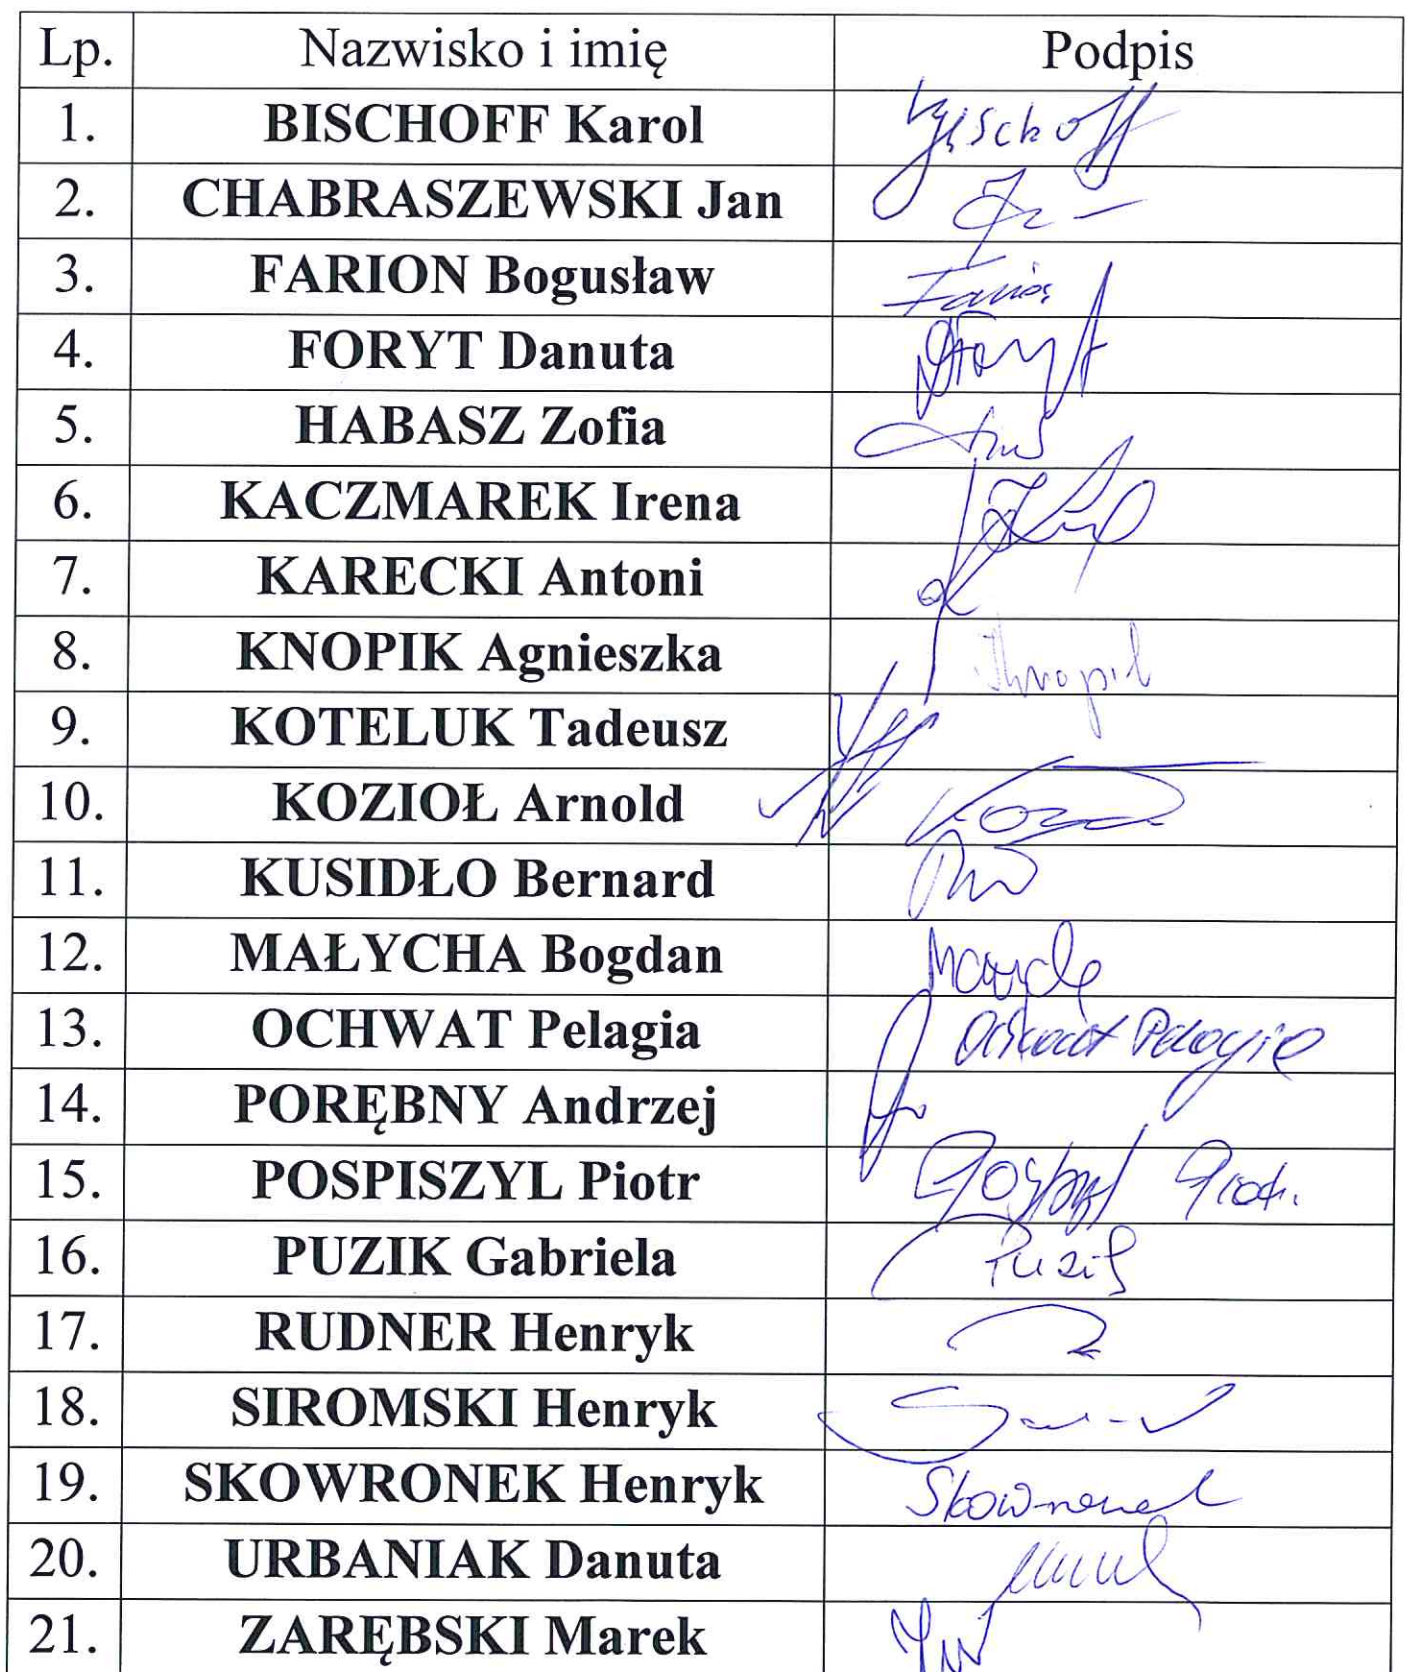 Lp. Nazwisko i imię Podpis
1. BISCHOFF Karol Bischoff
2. CHABRASZEWSKI Jan
3. FARION Bogusław
4. FORYT Danuta DForyt
5. HABASZ Zofia
6. KACZMAREK Irena
7. KARECKI Antoni
8. KNOPIK Agnieszka Knopik
9. KOTELUK Tadeusz
10. KOZIOŁ Arnold
11. KUSIDŁO Bernard
12. MAŁYCHA Bogdan
13. OCHWAT Pelagia Ochwat Pelagia
14. PORĘBNY Andrzej
15. POSPISZYL Piotr Piotr
16. PUZIK Gabriela Puzik
17. RUDNER Henryk
18. SIROMSKI Henryk
19. SKOWRONEK Henryk Skowronek
20. URBANIAK Danuta
21. ZARĘBSKI Marek